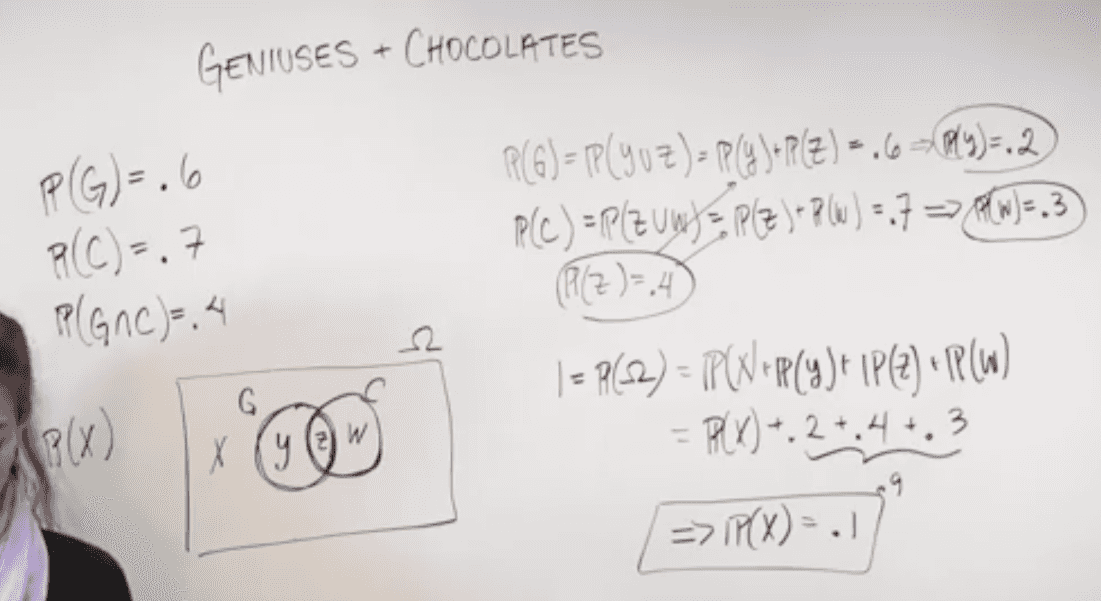 GENIUSES + CHOCOLATES
ℙ(G) = .6
ℙ(C) = .7
ℙ(G∩C) = .4
ℙ(X)
Ω
G C
X y z W
ℙ(G) = ℙ(y∪z) = ℙ(y) + ℙ(z) = .6 ⇒ ℙ(y) = .2
ℙ(C) = ℙ(z∪W) = ℙ(z) + ℙ(W) = .7 ⇒ ℙ(W) = .3
ℙ(z) = .4
1 = ℙ(Ω) = ℙ(X) + ℙ(y) + ℙ(z) + ℙ(W)
= ℙ(X) + .2 + .4 + .3
.9
⇒ ℙ(X) = .1